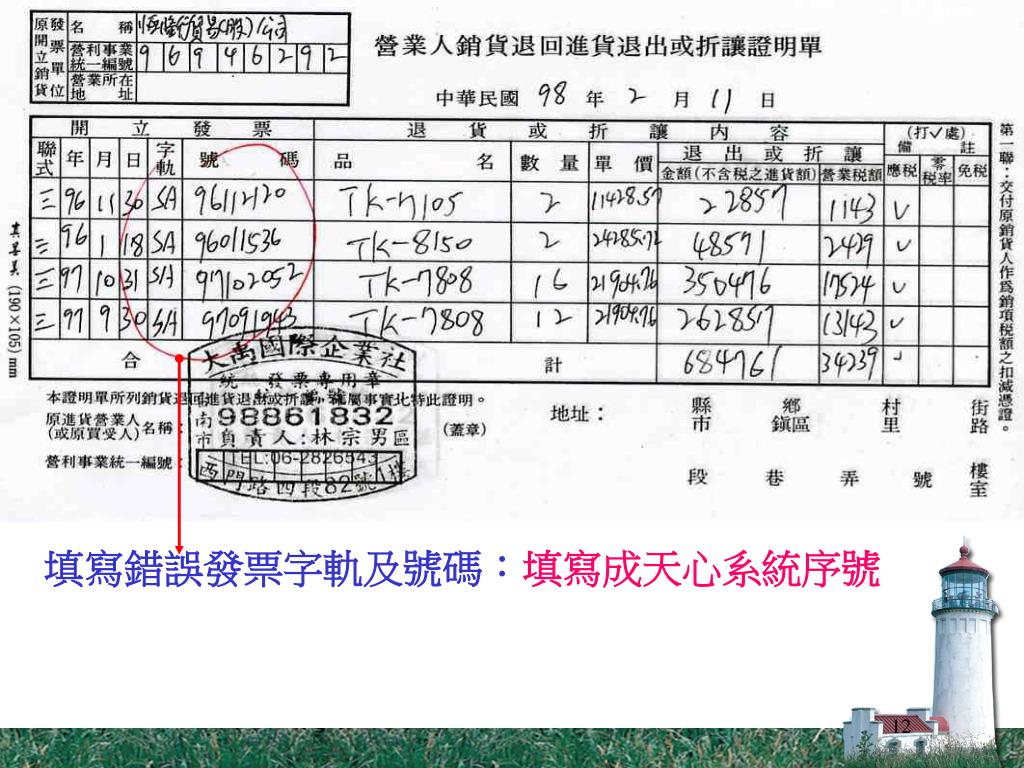 原開立銷貨單位 發票
名 稱
營利事業統一編號 96946292
營業所在地 址
營業人銷貨退回進貨退出或折讓證明單
中華民國 98 年 2 月 11 日
開 立 發 票 退 貨 或 折 讓 內 容 (打✓處)
備 註
聯式 年 月 日 字軌 號 碼 品 名 數 量 單 價 退 出 或 折 讓
金額(不含稅之進貨額) 營業稅額 應稅 零稅率 免稅
三 96 11 30 SA 96112120 TK-7105 2 11428.57 22857 1143 ✓
三 96 1 18 SA 96011536 TK-8150 2 24285.72 48571 2429 ✓
三 97 10 31 SA 97102052 TK-7808 16 21904.76 350476 17524 ✓
三 97 9 30 SA 97091943 TK-7808 12 21904.76 262857 13143 ✓
合 計 684761 34239 ✓
第一聯：交付原銷貨人作為銷項稅額之扣減憑證。
(190×105)mm
本證明單所列銷貨退回進貨退出或折讓，屬事實此特此證明。
原進貨營業人
(或原買受人) 名稱：
(蓋章)
營利事業統一編號：
地址： 縣市 鄉鎮區 村里 街路
段 巷 弄 號 樓室
大禹國際企業社
統一發票專用章
98861832
負責人:林宗男
TEL:06-2826543
西門路四段82號1樓
填寫錯誤發票字軌及號碼：填寫成天心系統序號
12